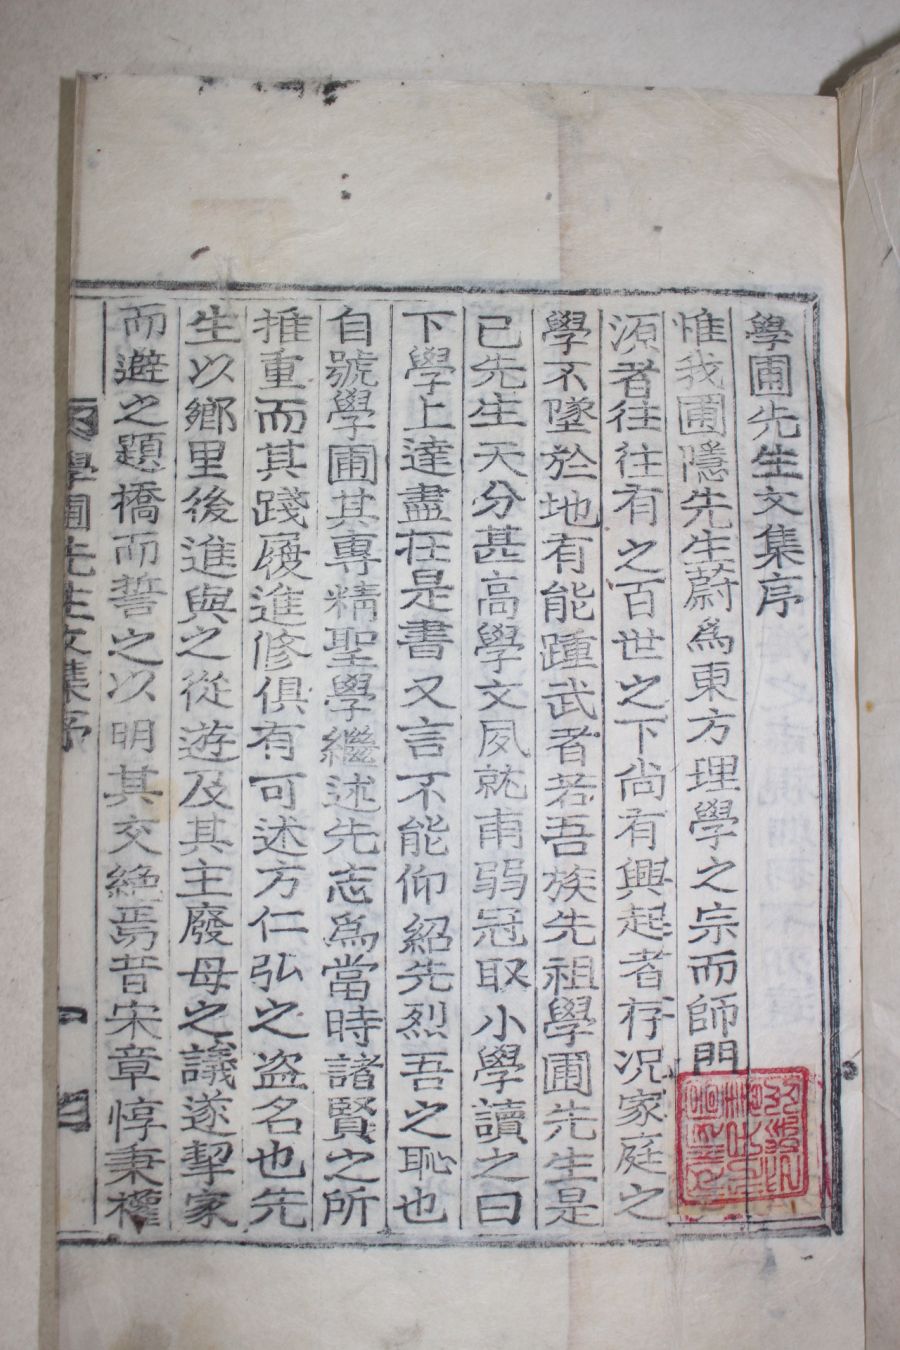 學圃先生文集序
惟我圃隱先生蔚爲東方理學之宗而師門
源者往往有之百世之下尚有興起者存况家庭之
學不墜於地有能踵武者若吾族先祖學圃先生是
已先生天分甚高學文夙就甫弱冠取小學讀之曰
下學上達盡在是書又言不能仰紹先烈吾之恥也
自號學圃其專精聖學繼述先志爲當時諸賢之所
推重而其踐履進修俱有可述方仁弘之盗名也先
生以鄉里後進與之從遊及其主廢母之議遂挈家
而避之題橋而誓之以明其交絶焉昔宋章惇秉權
學圃先生文集序